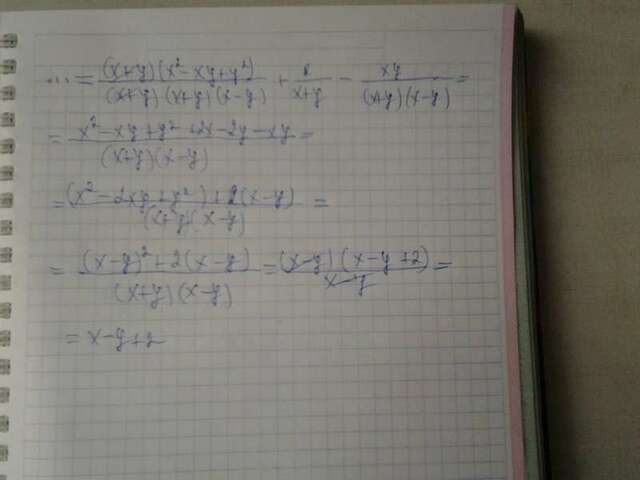 ... = (x+y)(x²-xy+y²)/(x+y)(x+y)(x-y) + 2/x+y - xy/(x+y)(x-y) =
= x²-xy+y²+2x-2y-xy/(x+y)(x-y) =
= (x²-2xy+y²)+2(x-y)/(x+y)(x-y) =
= (x-y)²+2(x-y)/(x+y)(x-y) = (x-y)(x-y+2)/x-y =
= x-y+2